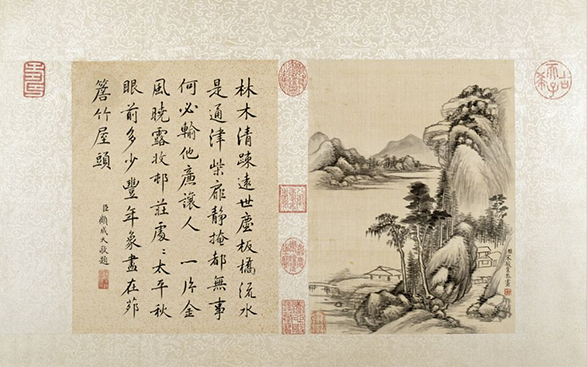 林木清踈遠世塵板橋流水
是通津柴扉静掩都無事
何必輸他廉讓人一片金
風曉露收邨莊處〻太平秋
眼前多少豐年象盡在茆
簷竹屋頭
臣顧成天敬題